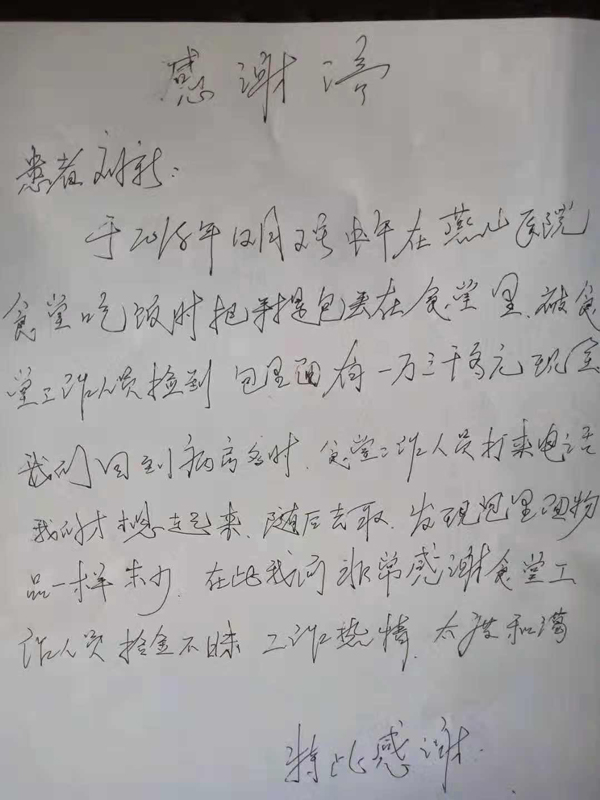 感谢信
患者刘新:
于2018年12月2号中午在燕山医院
食堂吃饭时把手提包丢在食堂里.被食
堂工作人员捡到 包里面有一万三千多元现金
我们回到病房多时.食堂工作人员打来电话
我们才想起来.随后去取.发现包里面物
品一样未少.在此我们非常感谢食堂工
作人员拾金不昧 工作热情.太度和蔼
特此感谢.